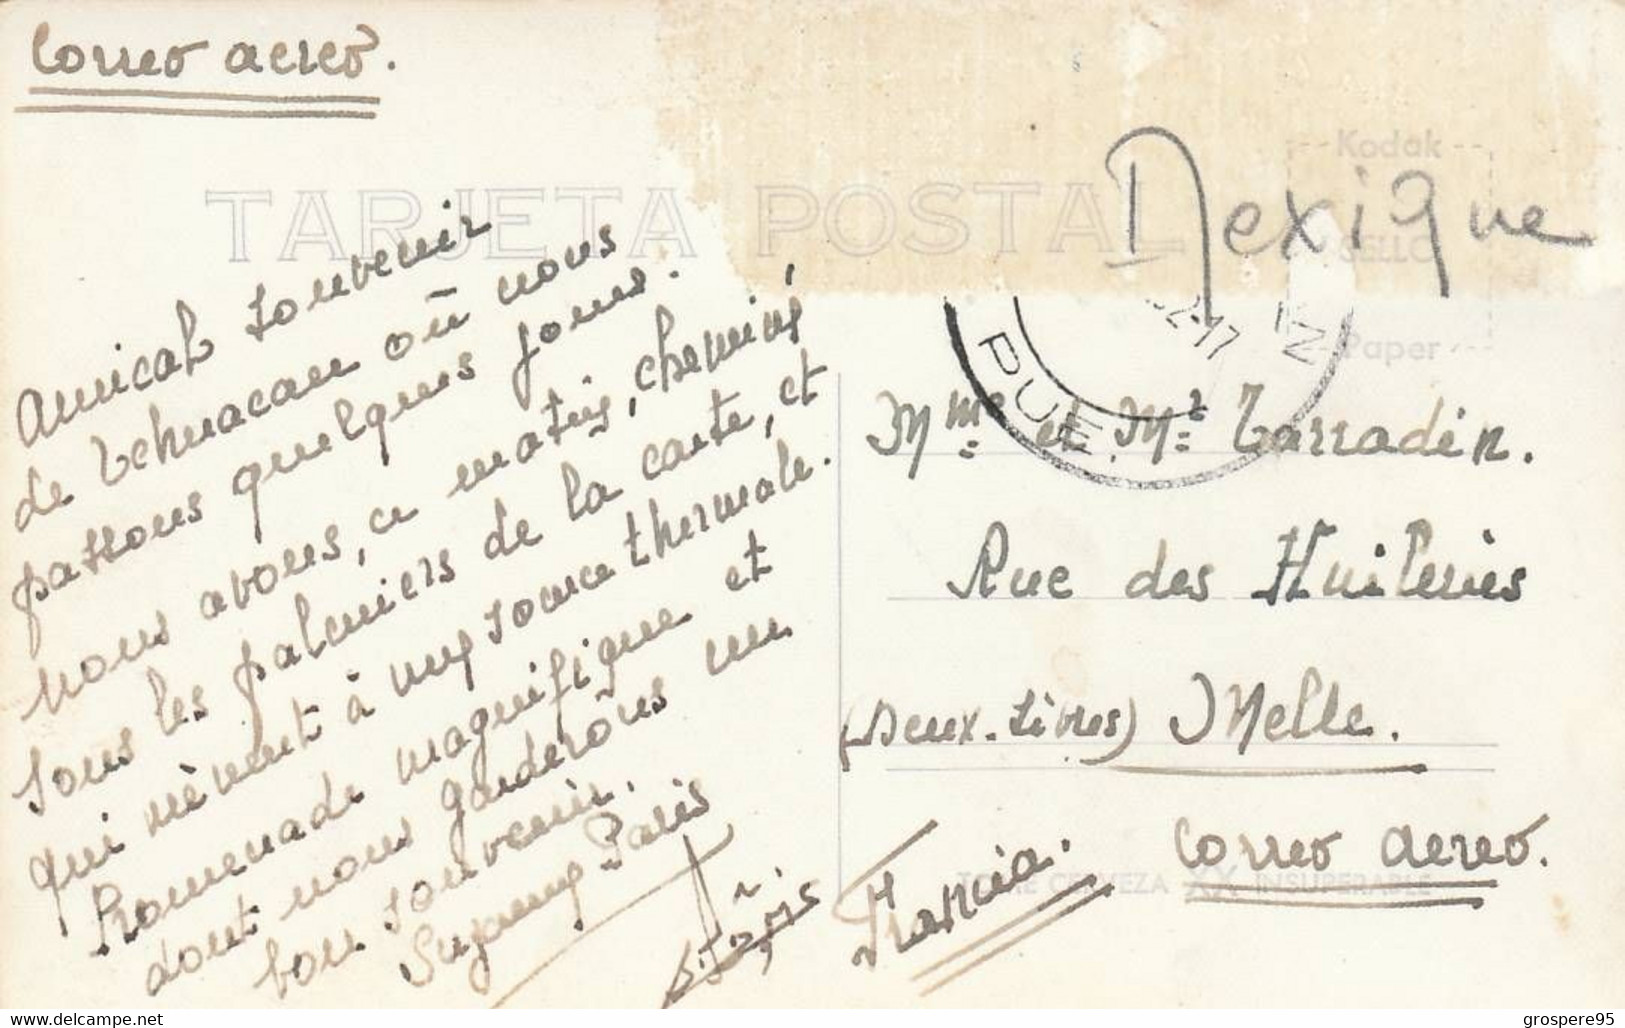 Correo aereo.
TARJETA POSTAL
Kodak
Mexique
SELLO
Paper
52-17
PUE
Amical souvenir
de Tehuacan où nous
passons quelques jours.
nous avons, ce matin, cheminé
sous les palmiers de la carte, et
qui mènent à une source thermale.
Promenade magnifique et
dont nous garderons un
bon souvenir.
Suzanne Paris
Mme et Mr Tarradin.
Rue des Huileries
(Deux-Sèvres) Melle.
Correo aereo.
TOME CERVEZA XX INSUPERABLE
Francia.
delcampe.net
grospere95